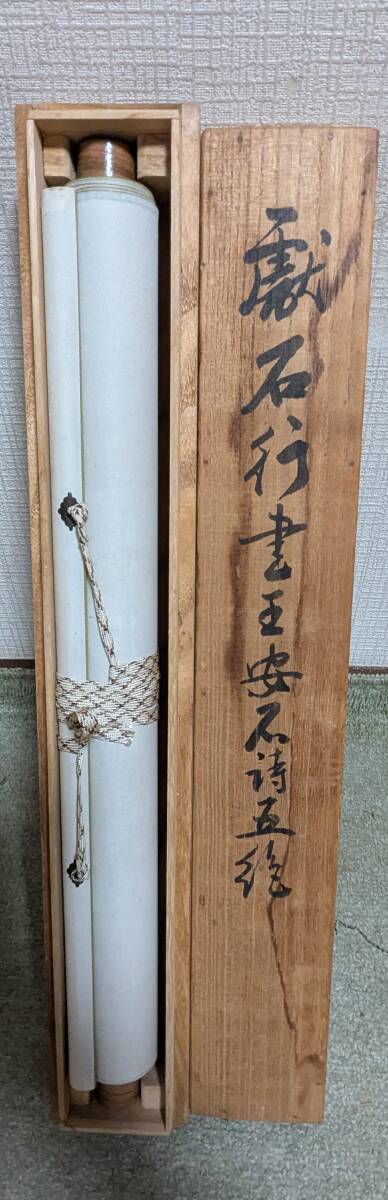 獻石行書王安石詩五絶